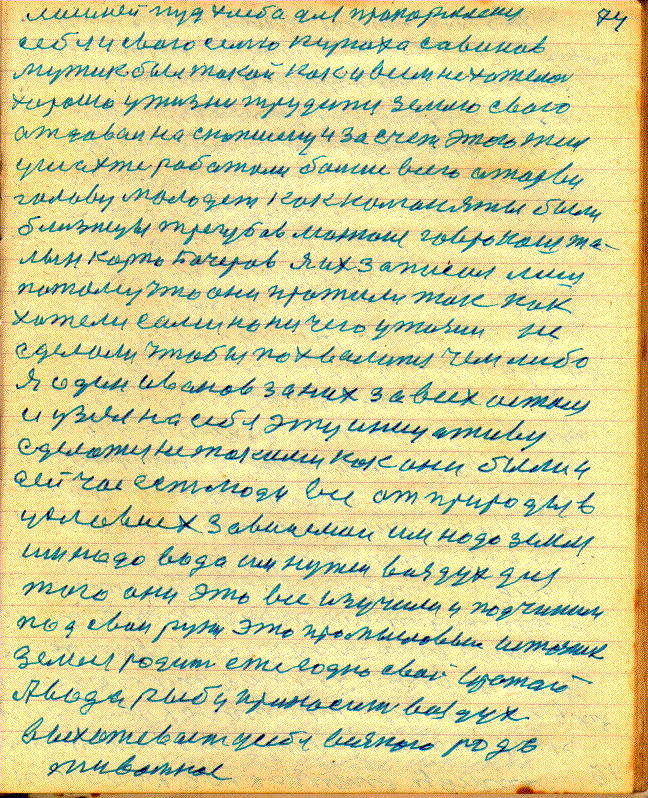 74
лишней пуд хлеба для прокормлени
себя и свого семю кироха савинов
мужик был такой как и всем не хотелос
хорошо у жизни трудитя землю свого
атдавал на спопшену и за счет этого жил
у шахте работали больше всего аторви
голову молодеж как команяты были
близнецы трегубов моташ говрю наш жа-
лын карто бочеров я их записал лиш
потому что они прожили так как
хотели сами но ни чего у жизни не
сделали чтобы похвалитя чем либо
я один иванов за них за всех остался
и узял на себя эту иницативу
сделатя не такими как они были и
сейчас есть люди все от природы в
условиях зависемои им надо земля
им надо вода им нужен воздух для
того они это все изучили и подчинили
под свои руки это промысловые источник
земля родит ежегодно свой урожай
А вода рыбу приносит воздух
всяного родо
животное